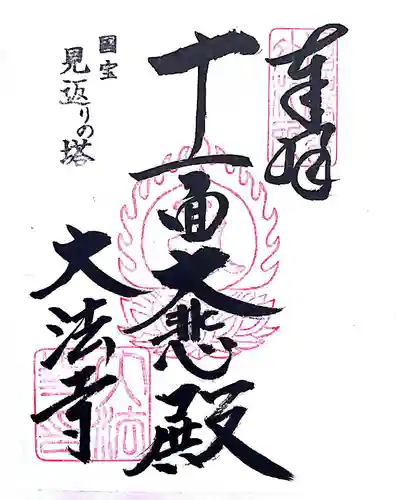 奉拝
十一面大悲殿
大法寺
国宝
見返りの塔